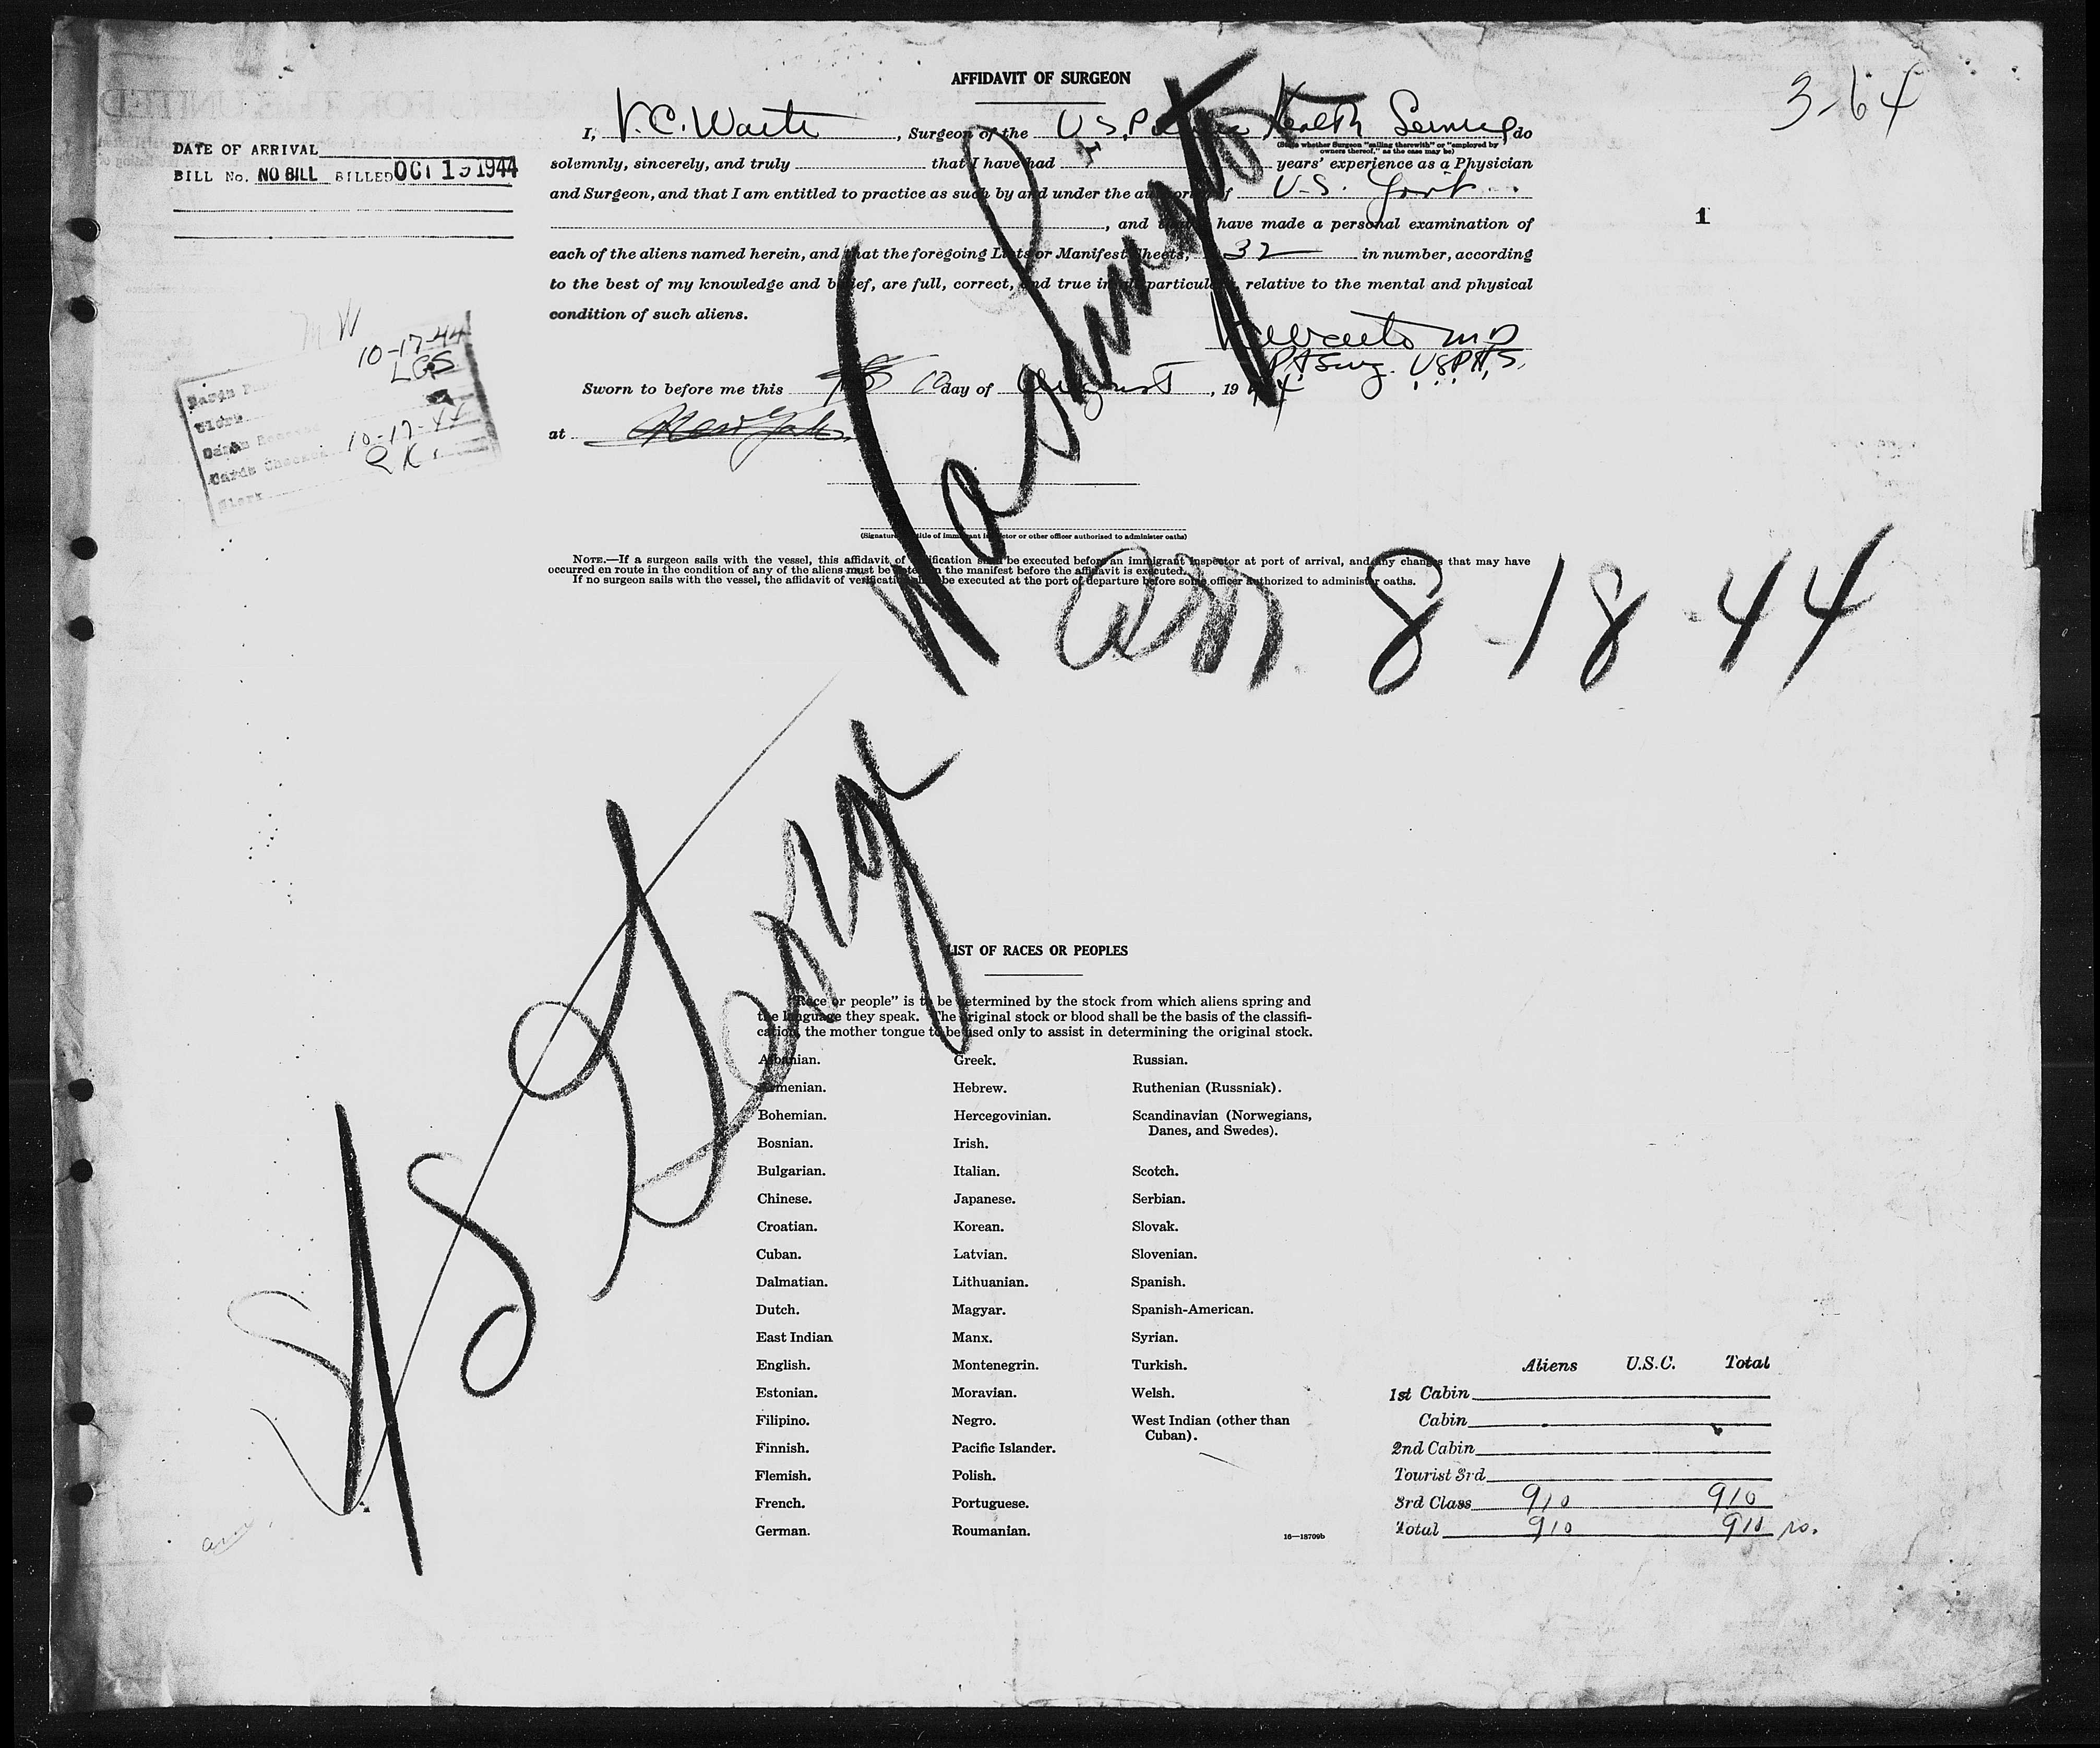 AFFIDAVIT OF SURGEON
3-64
I, V.C. Waite, Surgeon of the U.S. Health Service, do
(State whether Surgeon "sailing therewith" or "employed by owners thereof," as the case may be)
DATE OF ARRIVAL
BILL No. NO BILL BILLED OCT 1 1944
solemnly, sincerely, and truly that I have had years' experience as a Physician
and Surgeon, and that I am entitled to practice as such by and under the authority of U.S. Govt.
, and that I have made a personal examination of
1
each of the aliens named herein, and that the foregoing Lists or Manifest Sheets, 32 in number, according
to the best of my knowledge and belief, are full, correct, and true in all particulars relative to the mental and physical
condition of such aliens.
MW
10-17-44
LGS
Clerk
Cards Checked 10-17-44
Clerk
VC Waite MD
P.A. Surg. USPHS.
Sworn to before me this 10 day of August, 1944
at New York
(Signature and title of immigrant inspector or other officer authorized to administer oaths)
NOTE.—If a surgeon sails with the vessel, this affidavit of verification shall be executed before an immigrant inspector at port of arrival, and any changes that may have
occurred en route in the condition of any of the aliens must be noted on the manifest before the affidavit is executed.
If no surgeon sails with the vessel, the affidavit of verification shall be executed at the port of departure before some officer authorized to administer oaths.
Washington
8-18-44
George
LIST OF RACES OR PEOPLES
"Race or people" is to be determined by the stock from which aliens spring and
the language they speak. The original stock or blood shall be the basis of the classifi-
cation, the mother tongue to be used only to assist in determining the original stock.
Albanian.
Armenian.
Bohemian.
Bosnian.
Bulgarian.
Chinese.
Croatian.
Cuban.
Dalmatian.
Dutch.
East Indian
English.
Estonian.
Filipino.
Finnish.
Flemish.
French.
German.
Greek.
Hebrew.
Hercegovinian.
Irish.
Italian.
Japanese.
Korean.
Latvian.
Lithuanian.
Magyar.
Manx.
Montenegrin.
Moravian.
Negro.
Pacific Islander.
Polish.
Portuguese.
Roumanian.
Russian.
Ruthenian (Russniak).
Scandinavian (Norwegians,
Danes, and Swedes).
Scotch.
Serbian.
Slovak.
Slovenian.
Spanish.
Spanish-American.
Syrian.
Turkish.
Welsh.
West Indian (other than
Cuban).
16—18709b
Aliens U.S.C. Total
1st Cabin
Cabin
2nd Cabin
Tourist 3rd
3rd Class 910 910
Total 910 910